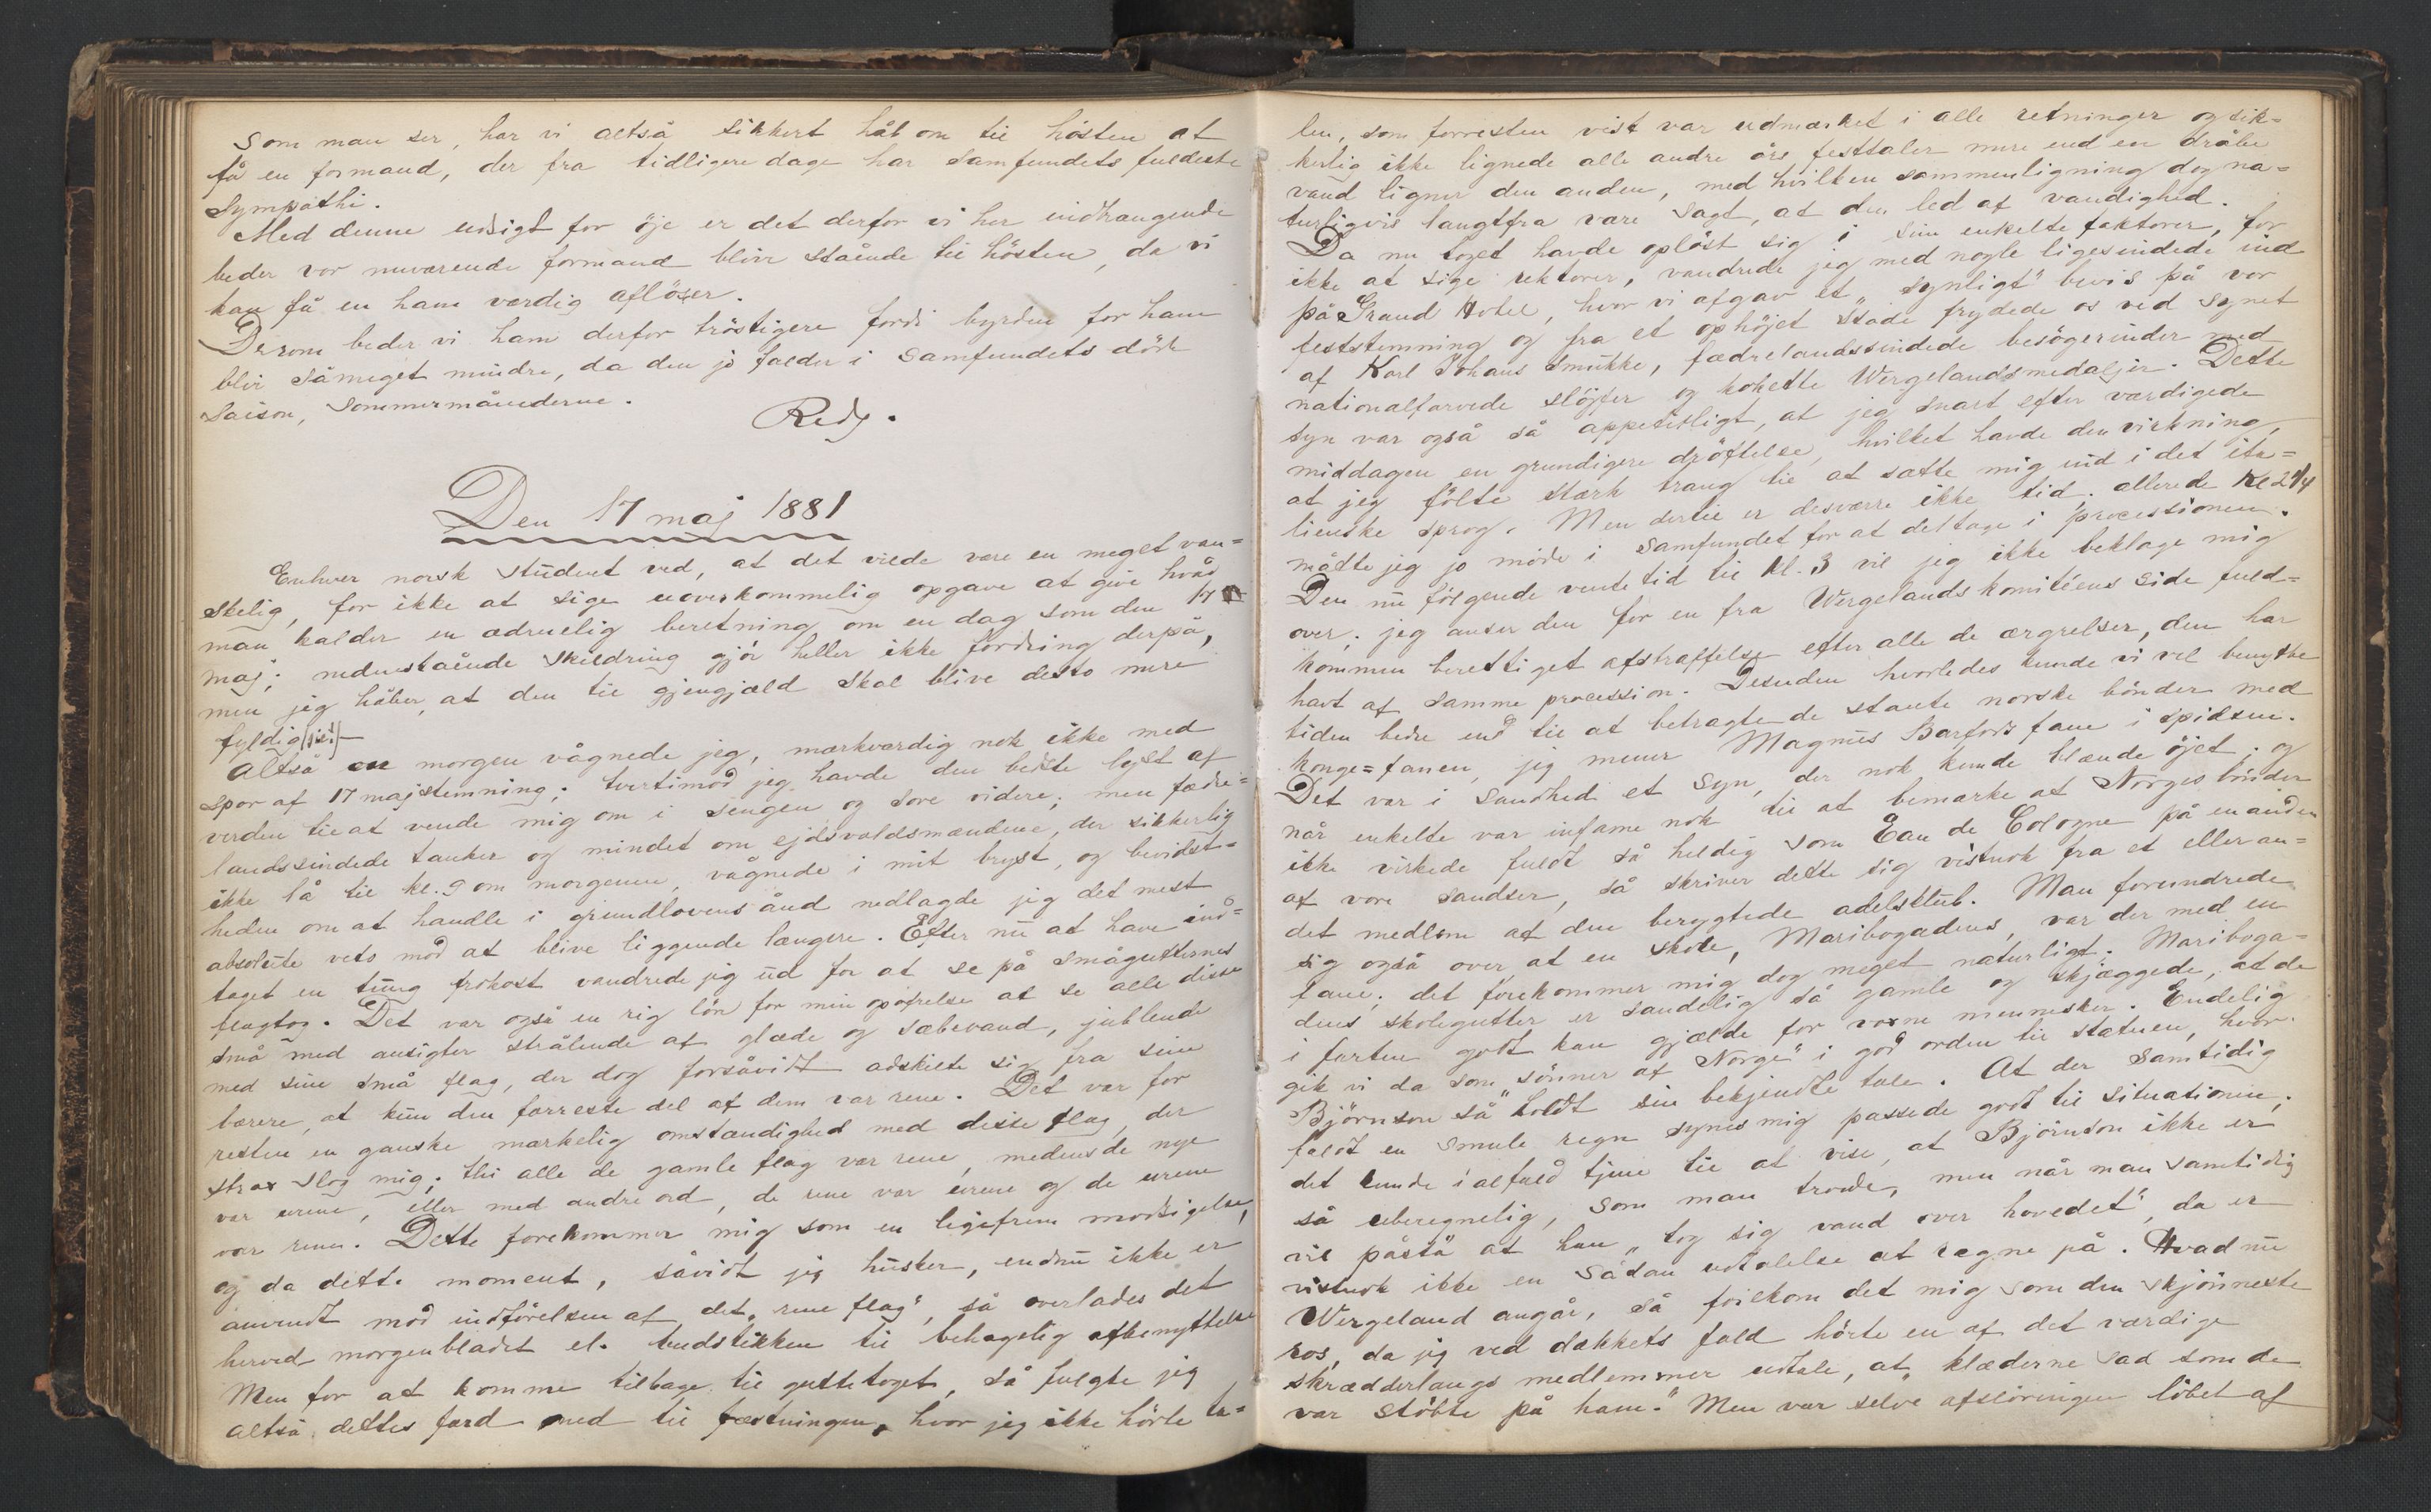 Som man ser, har vi altså sikkert håb om til hösten at
få en formand, der fra tidligere dage har Samfundets fuldeste
Sympathi.
Med denne udsigt for öje er det derfor vi her indtrængende
beder vor nuværende formand blive stående til hösten, da vi
kan få en ham værdig aflöser.
Dersom beder vi ham derfor tröstigere fordi byrden for ham
blir såmeget mindre, da den jo falder i Samfundets döde
Saison, Sommermånederne.
Reds.
Den 17 maj 1881
Enhver norsk student ved, at det vilde være en meget van=
skelig, for ikke at sige uoverkommelig opgave at give hvad
man kalder en ædruelig beretning om en dag som den 17
maj; nedenstående skildring gjör heller ikke fordring derpå,
men jeg håber, at den til gjengjæld skal blive desto mere
fyldig (sic!)—
Altså om morgen vågnede jeg, mærkværdig nok ikke med
spor af 17 majstemning; tvertimod jeg havde den bedste lyst af
verden til at vende mig om i sengen og sove videre; men fædre=
landssindede tanker og mindet om ejdsvoldsmændene, der sikkerlig
ikke lå til kl. 9 om morgenen, vågnede i mit bryst, og bevidst=
heden om at handle i grundlovens ånd nedlagde jeg det mest
absolute veto mod at blive liggende længere. Efter nu at have ind=
taget en tung frokost vandrede jeg ud for at se på smågutternes
flagtog. Det var også en rig lön for min opofrelse at se alle disse
små med ansigter strålende af glæde og sæbevand, jublende
med sine små flag, der dog forsåvidt adskilte sig fra sine
bærere, at kun den færreste del af dem var rene. Det var for
resten en ganske mærkelig omstændighed med disse flag, der
strax slog mig; thi alle de gamle flag var rene, medens de nye
var urene, eller med andre ord, de rene var urene og de urene
var rene. Dette forekommer mig som en ligefrem modsigelse,
og da dette moment, såvidt jeg husker, endnu ikke er
anvendt mod indförelsen af det „rene flag", så overlades det
herved morgenbladet el. budstikken til behagelig afbenyttelse
Men for at komme tilbage til guttetoget, så fulgte jeg
altså dettes færd ned til fæstningen, hvor jeg ikke hörte ta=
len, som forresten vist var udmærket i alle retninger og sik=
kerlig ikke lignede alle andre års festtaler mere end en dråbe
vand ligner den anden, med hvilken sammenligning dog na=
turligvis langtfra være sagt, at den led af vandighed.
Da nu toget havde oplöst sig i sine enkelte faktorer, for
ikke at sige rektorer, vandrede jeg med nogle ligesindede ind
på Grand Hotel, hvor vi afgav et „synligt" bevis på vor
feststemning og fra et ophöjet stade frydede os ved synet
af Karl Johans smukke, fædrelandssindede besögerinder med
nationalfarvede slöjfer og kokette Wergelandsmedaljer. Dette
syn var også så appetitligt, at jeg snart efter værdigede
middagen en grundigere dröftelse, hvilket havde den virkning,
at jeg fölte stærk trang til at sætte mig ind i det ita=
lienske sprog. Men dertil er desværre ikke tid; allerede Kl 2 1/4
måtte jeg jo möde i Samfundet for at deltage i processionen.
Den nu fölgende ventetid til kl. 3 vil jeg ikke beklage mig
over; jeg anser den for en fra Wergelandskomitéens side fuld=
kommen berettiget afstraffelse efter alle de ærgrelser, den har
havt af samme procession. Desuden hvorledes kunde vi vel benytte
tiden bedre end til at betragte de staute norske bönder med
konge=fanen, jeg mener Magnus Barfods fane i spidsen.
Det var i Sandhed et Syn, der nok kunde blænde öjet; og
når enkelte var infame nok til at bemærke at Norges bönder
ikke virkede fuldt så heldig som Eau de Cologne på en anden
af vore sandser, så skriver dette sig vistnok fra et eller an=
det medlem af den berygtede adelsklub. Man forundrede
sig også over at en skole, Maribogadens, var der med en
fane; det forekommer mig dog meget naturligt; Mariboga=
dens skolegutter er sandelig så gamle og skjæggede, at de
i farten godt kan gjælde for voxne mennesker. Endelig
gik vi da som „sönner af Norge" i god orden til statuen, hvor
Björnson så holdt sin bekjendte tale. At der samtidig
faldt en smule regn synes mig passede godt til situationen;
det kunde ialfald tjene til at vise, at Björnson ikke er
så uberegnelig, som man troede, men når man samtidig
vil påstå at han „tog sig vand over hovedet", da er
vistnok ikke en sådan udtalelse at regne på. Hvad nu
Wergeland angår, så forekom det mig som den skjönneste
ros, da jeg ved dækkets fald hörte en af det værdige
skrædderlaugs medlemmer udtale, at „klæderne sad som de
var stöbte på ham." Men var selve aflöringen löbet af